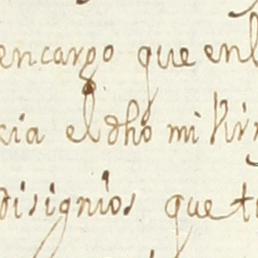 encargo que enl
cia el dho mi Kir
disignios que tu